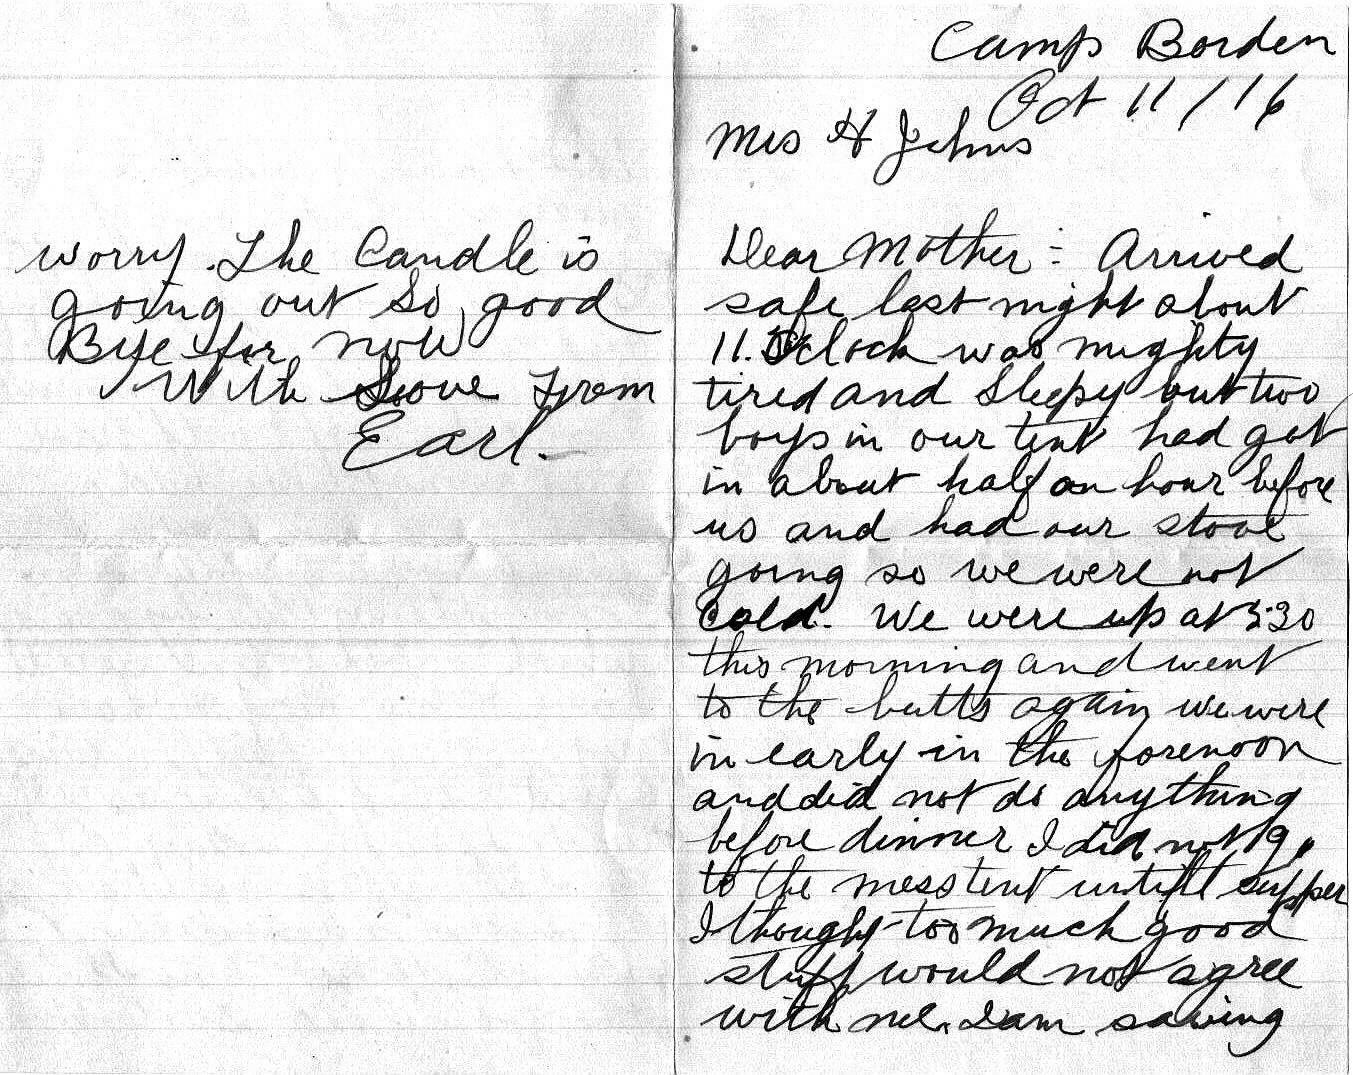 Camp Borden
Oct 11/16
Mrs H Johns
Dear Mother:- Arrived
safe last night about
11. O'clock was mighty
tired and sleepy but two
boys in our tent had got
in about half an hour before
us and had our stove
going so we were not
Cold. We were up at 5:30
this morning and went
to the butts again we were
in early in the forenoon
and did not do anything
before dinner I did not go
to the mess tent untill supper
I thought too much good
stuff would not agree
with me. I am saving
worry. The Candle is
going out so good
Bye for now
With Love From
Earl.